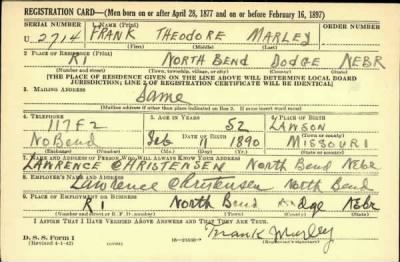 REGISTRATION CARD—(Men born on or after April 28, 1877 and on or before February 16, 1897)
SERIAL NUMBER 1. NAME (Print) ORDER NUMBER
U 2714 FRANK THEODORE MARLEY
(First) (Middle) (Last)
2. PLACE OF RESIDENCE (Print)
R1 NORTH BEND DODGE NEBR
(Number and street) (Town, township, village, or city) (County) (State)
[THE PLACE OF RESIDENCE GIVEN ON THE LINE ABOVE WILL DETERMINE LOCAL BOARD
JURISDICTION; LINE 2 OF REGISTRATION CERTIFICATE WILL BE IDENTICAL]
3. MAILING ADDRESS
Same
(Mailing address if other than place indicated on line 2. If same insert word same)
4. TELEPHONE 5. AGE IN YEARS 6. PLACE OF BIRTH
117F2 52 LAWSON
DATE OF BIRTH (Town or county)
No Bend Feb 11 1890 MISSOURI
(Mo.) (Day) (Yr.) (State or country)
7. NAME AND ADDRESS OF PERSON WHO WILL ALWAYS KNOW YOUR ADDRESS
LAWRENCE CHRISTENSEN North Bend Nebr
8. EMPLOYER'S NAME AND ADDRESS
Lawrence Christensen North Bend
9. PLACE OF EMPLOYMENT OR BUSINESS
R1 North Bend Dodge Nebr
(Number and street or R. F. D. number) (Town) (County) (State)
I AFFIRM THAT I HAVE VERIFIED ABOVE ANSWERS AND THAT THEY ARE TRUE.
D. S. S. Form 1
(Revised 4-1-42) (over) Frank Marley
(Registrant's signature)